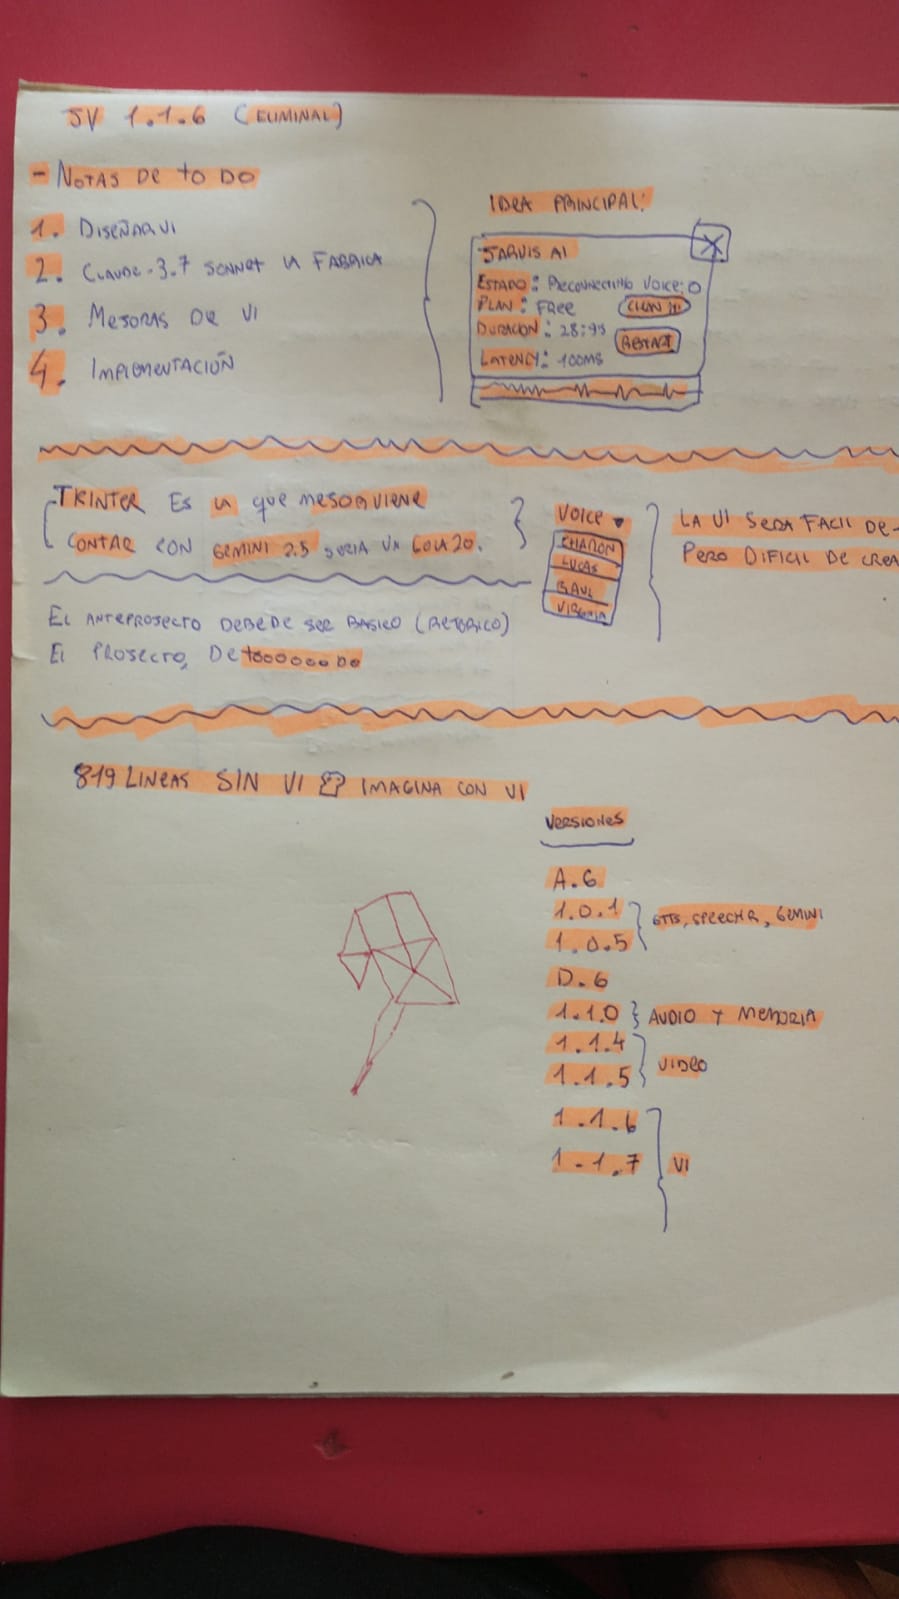 JV 1.1.6 (ELIMINAL)
- NOTAS DE to DO
1. DISEÑAR UI
2. CLAUDE-3.7 SONNET LA FABRICA
3. MEJORAS DE UI
4. IMPLEMENTACIÓN
IDEA PRINCIPAL:
X
JARVIS AI
ESTADO: RECONNECTING VOICE: O
PLAN: FREE
DURACION: 28:93
RESTART
LATENCY: 100MS
TKINTER ES LA QUE MEJOR VIENE
CONTAR CON GEMINI 2.5 SERIA UN GOLAZO.
VOICE ▼
CHARON
LUCAS
RAUL
VIRGINIA
LA UI SERA FACIL DE
PERO DIFICIL DE CREA
EL ANTEPROYECTO DEBE DE SER BASICO (RETORICO)
El PROYECTO, DE toooooo DO
819 LINEAS SIN UI IMAGINA CON UI
VERSIONES
A.6
1.0.1
1.0.5
GTTS, SPEECHR, GEMINI
D.6
1.1.0 } AUDIO Y MEMORIA
1.1.4
1.1.5
VIDEO
1.1.6
1.1.7
UI